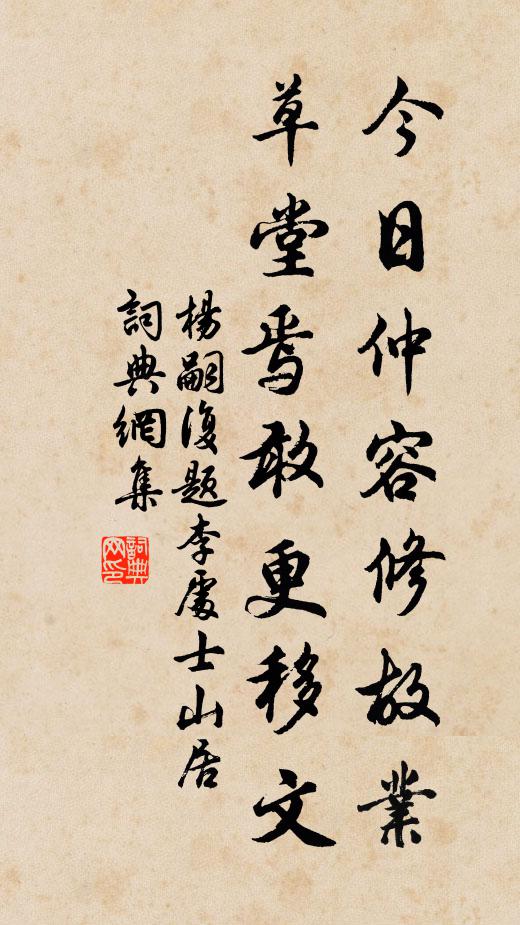 今日仲容修故業
草堂焉敢更移文
楊嗣復題李處士山居
詞典網集
詞典
网印